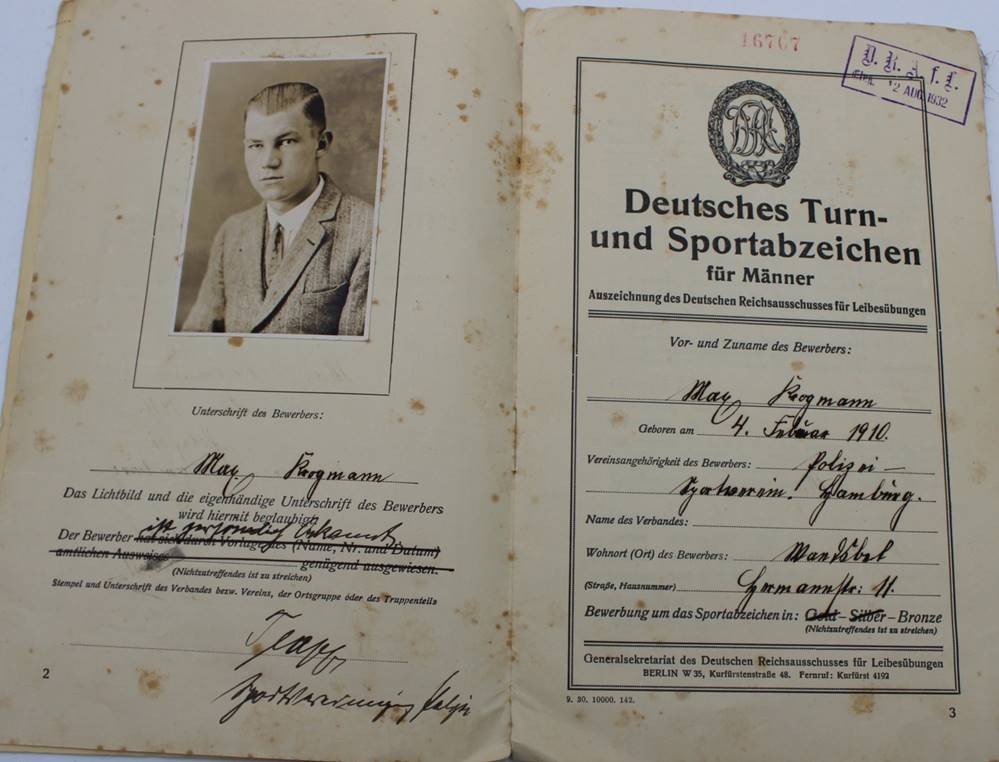 Unterschrift des Bewerbers:
Max Krogmann
Das Lichtbild und die eigenhändige Unterschrift des Bewerbers
wird hiermit beglaubigt
ist persönlich bekannt
Der Bewerber hat sich durch Vorlage des (Name, Nr. und Datum)
amtlichen Ausweises genügend ausgewiesen.
(Nichtzutreffendes ist zu streichen)
Stempel und Unterschrift des Verbandes bezw. Vereins, der Ortsgruppe oder des Truppenteils
2
16707
D. R. A. f. L.
Eing. 12 AUG 1932
Deutsches Turn-
und Sportabzeichen
für Männer
Auszeichnung des Deutschen Reichsausschusses für Leibesübungen
Vor- und Zuname des Bewerbers:
Max Krogmann
Geboren am 4. Februar 1910.
Vereinsangehörigkeit des Bewerbers: Polizei-
Sportverein. Hamburg.
Name des Verbandes:
Wohnort (Ort) des Bewerbers: Wandsbek
(Straße, Hausnummer) Hermannstr: 11.
Bewerbung um das Sportabzeichen in: Gold – Silber – Bronze
(Nichtzutreffendes ist zu streichen)
Generalsekretariat des Deutschen Reichsausschusses für Leibesübungen
BERLIN W 35, Kurfürstenstraße 48. Fernruf: Kurfürst 4192
9. 30. 10000. 142.
3